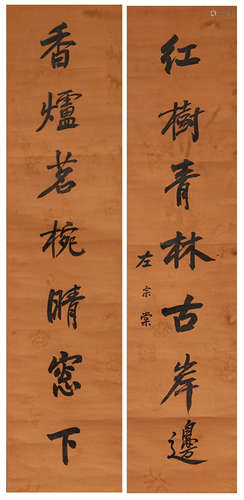 紅樹青林古岸邊
左宗棠
香爐茗椀晴窻下